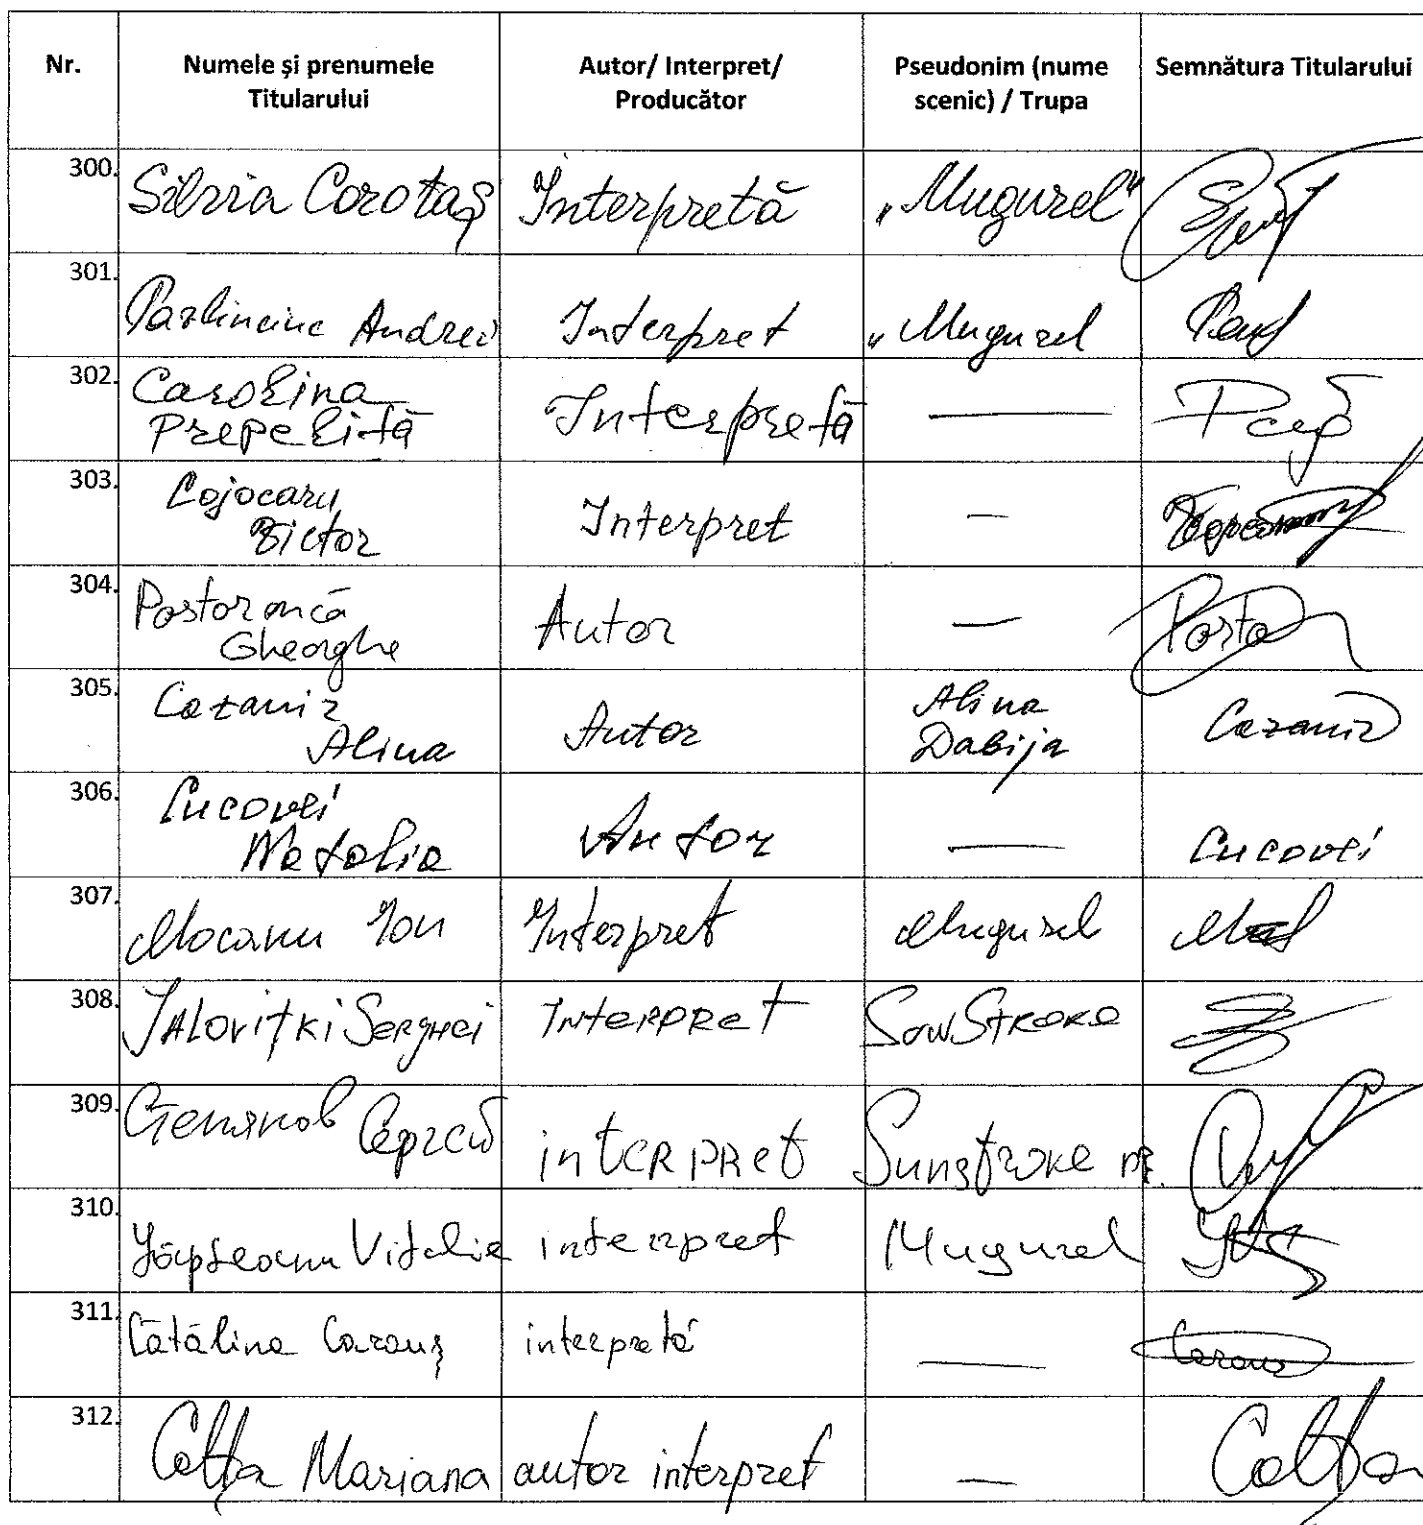 Nr. Numele și prenumele Titularului Autor/ Interpret/ Producător Pseudonim (nume scenic) / Trupa Semnătura Titularului
300. Silvia Corotaș Interpretă „Mugurel"
301. Andrei Interpret „Mugurel
302. Carolina Prepeliță Interpretă —
303. Cojocaru Victor Interpret —
304. Postoroncă Gheorghe Autor — Posto
305. Cazanir Alina Autor Alina Dabija Cazanir
306. Cucovei Natalia Autor — Cucovei
307. Mocanu Ion Interpret Mugurel
308. Jalovițki Serghei Interpret SunStroke
309. Степанов Сергей interpret Sunstroke pr.
310. Vitalie interpret Mugurel
311. Cătălina Carauș interpretă —
312. Colța Mariana autor interpret — Colța